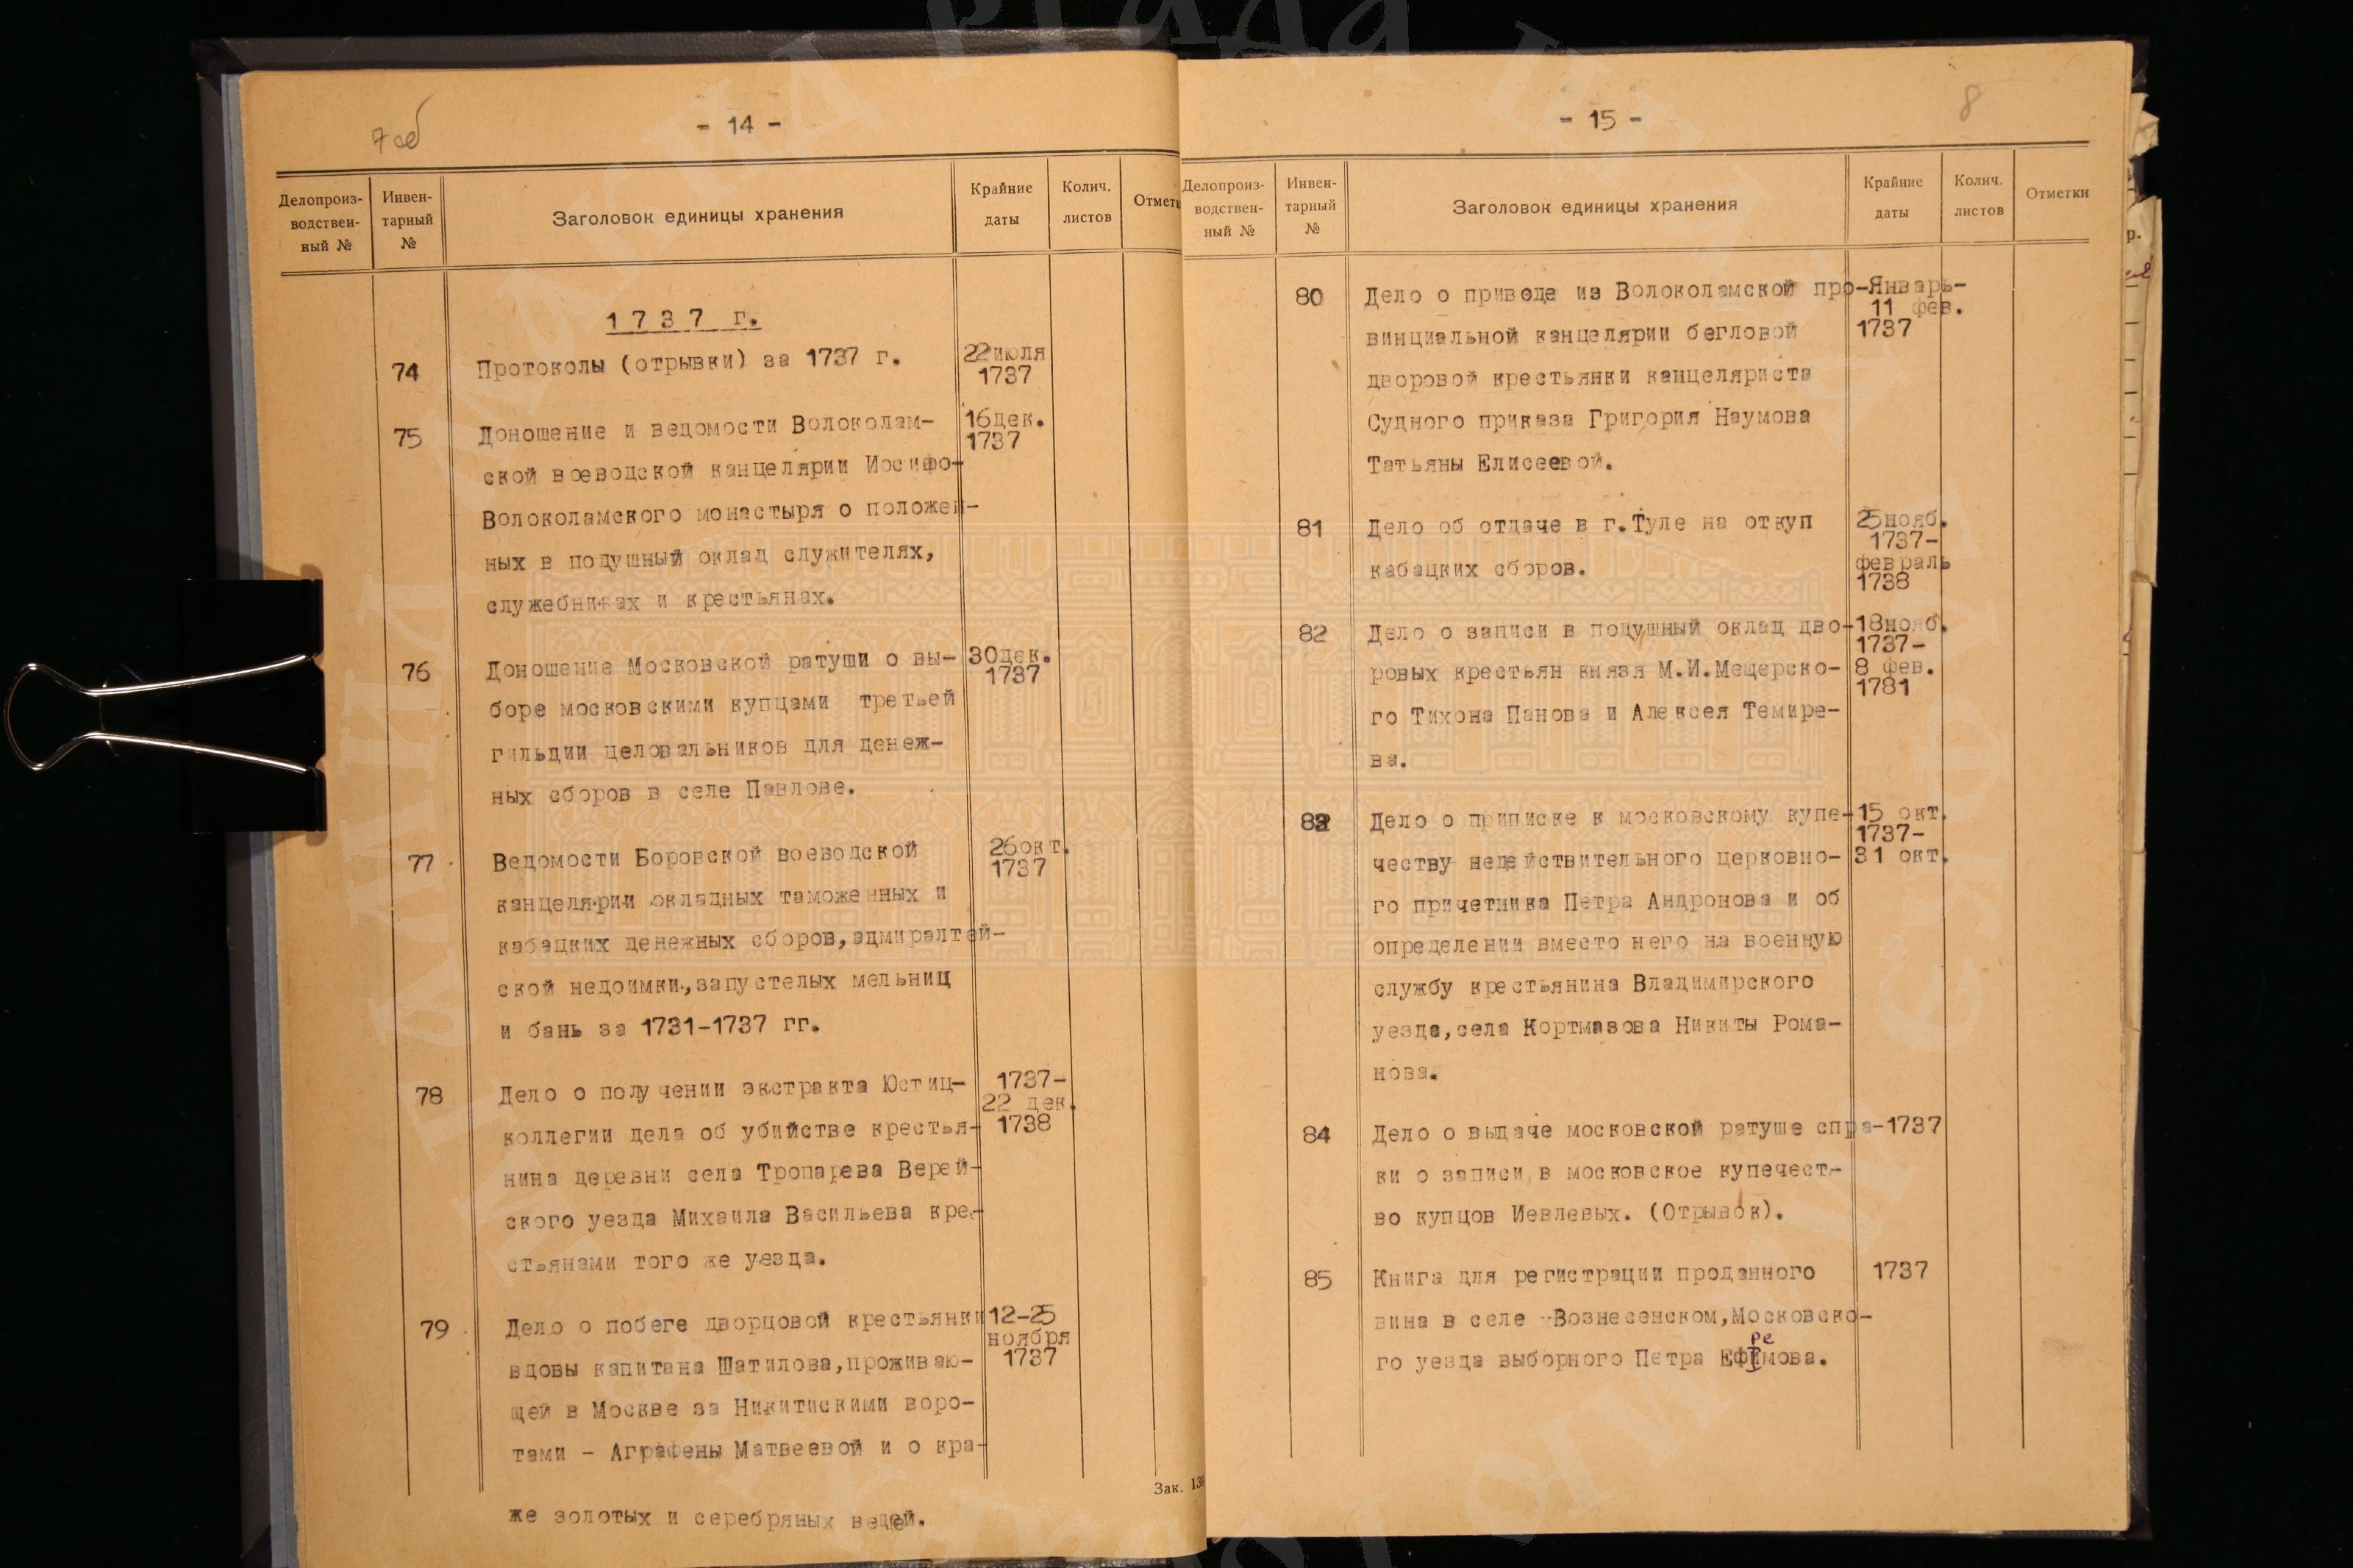 7об
- 14 -
Делопроиз-
водствен-
ный №
Инвен-
тарный
№
Заголовок единицы хранения
Крайние
даты
Колич.
листов
Отметк
1737 г.
74 Протоколы (отрывки) за 1737 г. 22июля
1737
75 Доношение и ведомости Волоколам- 16дек.
1737
ской воеводской канцелярии Иосифо-
Волоколамского монастыря о положен-
ных в подушный оклад служителях,
служебниках и крестьянах.
76 Доношение Московской ратуши о вы- 30дек.
1737
боре московскими купцами третьей
гильдии целовальников для денеж-
ных сборов в селе Павлове.
77 Ведомости Боровской воеводской 26окт.
1737
канцелярии окладных таможенных и
кабацких денежных сборов,адмиралтей-
ской недоимки,запустелых мельниц
и бань за 1731-1737 гг.
78 Дело о получении экстракта Юстиц- 1737-
22 дек.
коллегии дела об убийстве крестья- 1738
нина деревни села Тропарева Верей-
ского уезда Михаила Васильева кре-
стьянами того же уезда.
79 Дело о побеге дворцовой крестьянки 12-25
ноября
вдовы капитана Шатилова,проживаю- 1737
щей в Москве за Никитискими воро-
тами - Аграфены Матвеевой и о кра-
же золотых и серебряных вещей.
Зак. 13
8
- 15 -
Делопроиз-
водствен-
ный №
Инвен-
тарный
№
Заголовок единицы хранения
Крайние
даты
Колич.
листов
Отметки
80 Дело о приводе из Волоколамской про- Январь-
11 фев.
винциальной канцелярии бегловой 1737
дворовой крестьянки канцеляриста
Судного приказа Григория Наумова
Татьяны Елисеевой.
81 Дело об отдаче в г.Туле на откуп 25нояб.
1737-
кабацких сборов. февраль
1738
82 Дело о записи в подушный оклад дво- 18нояб.
1737-
ровых крестьян князя М.И.Мещерско- 8 фев.
1781
го Тихона Панова и Алексея Темире-
ва.
83 Дело о приписке к московскому купе- 15 окт.
1737-
честву недействительного церковно- 31 окт.
го причетника Петра Андронова и об
определении вместо него на военную
службу крестьянина Владимирского
уезда,села Кортмазова Никиты Рома-
нова.
84 Дело о выдаче московской ратуше спра- 1737
ки о записи в московское купечест-
во купцов Иевлевых. (Отрывок).
85 Книга для регистрации проданного 1737
вина в селе Вознесенском,Московско-
ре
го уезда выборного Петра Ефимова.